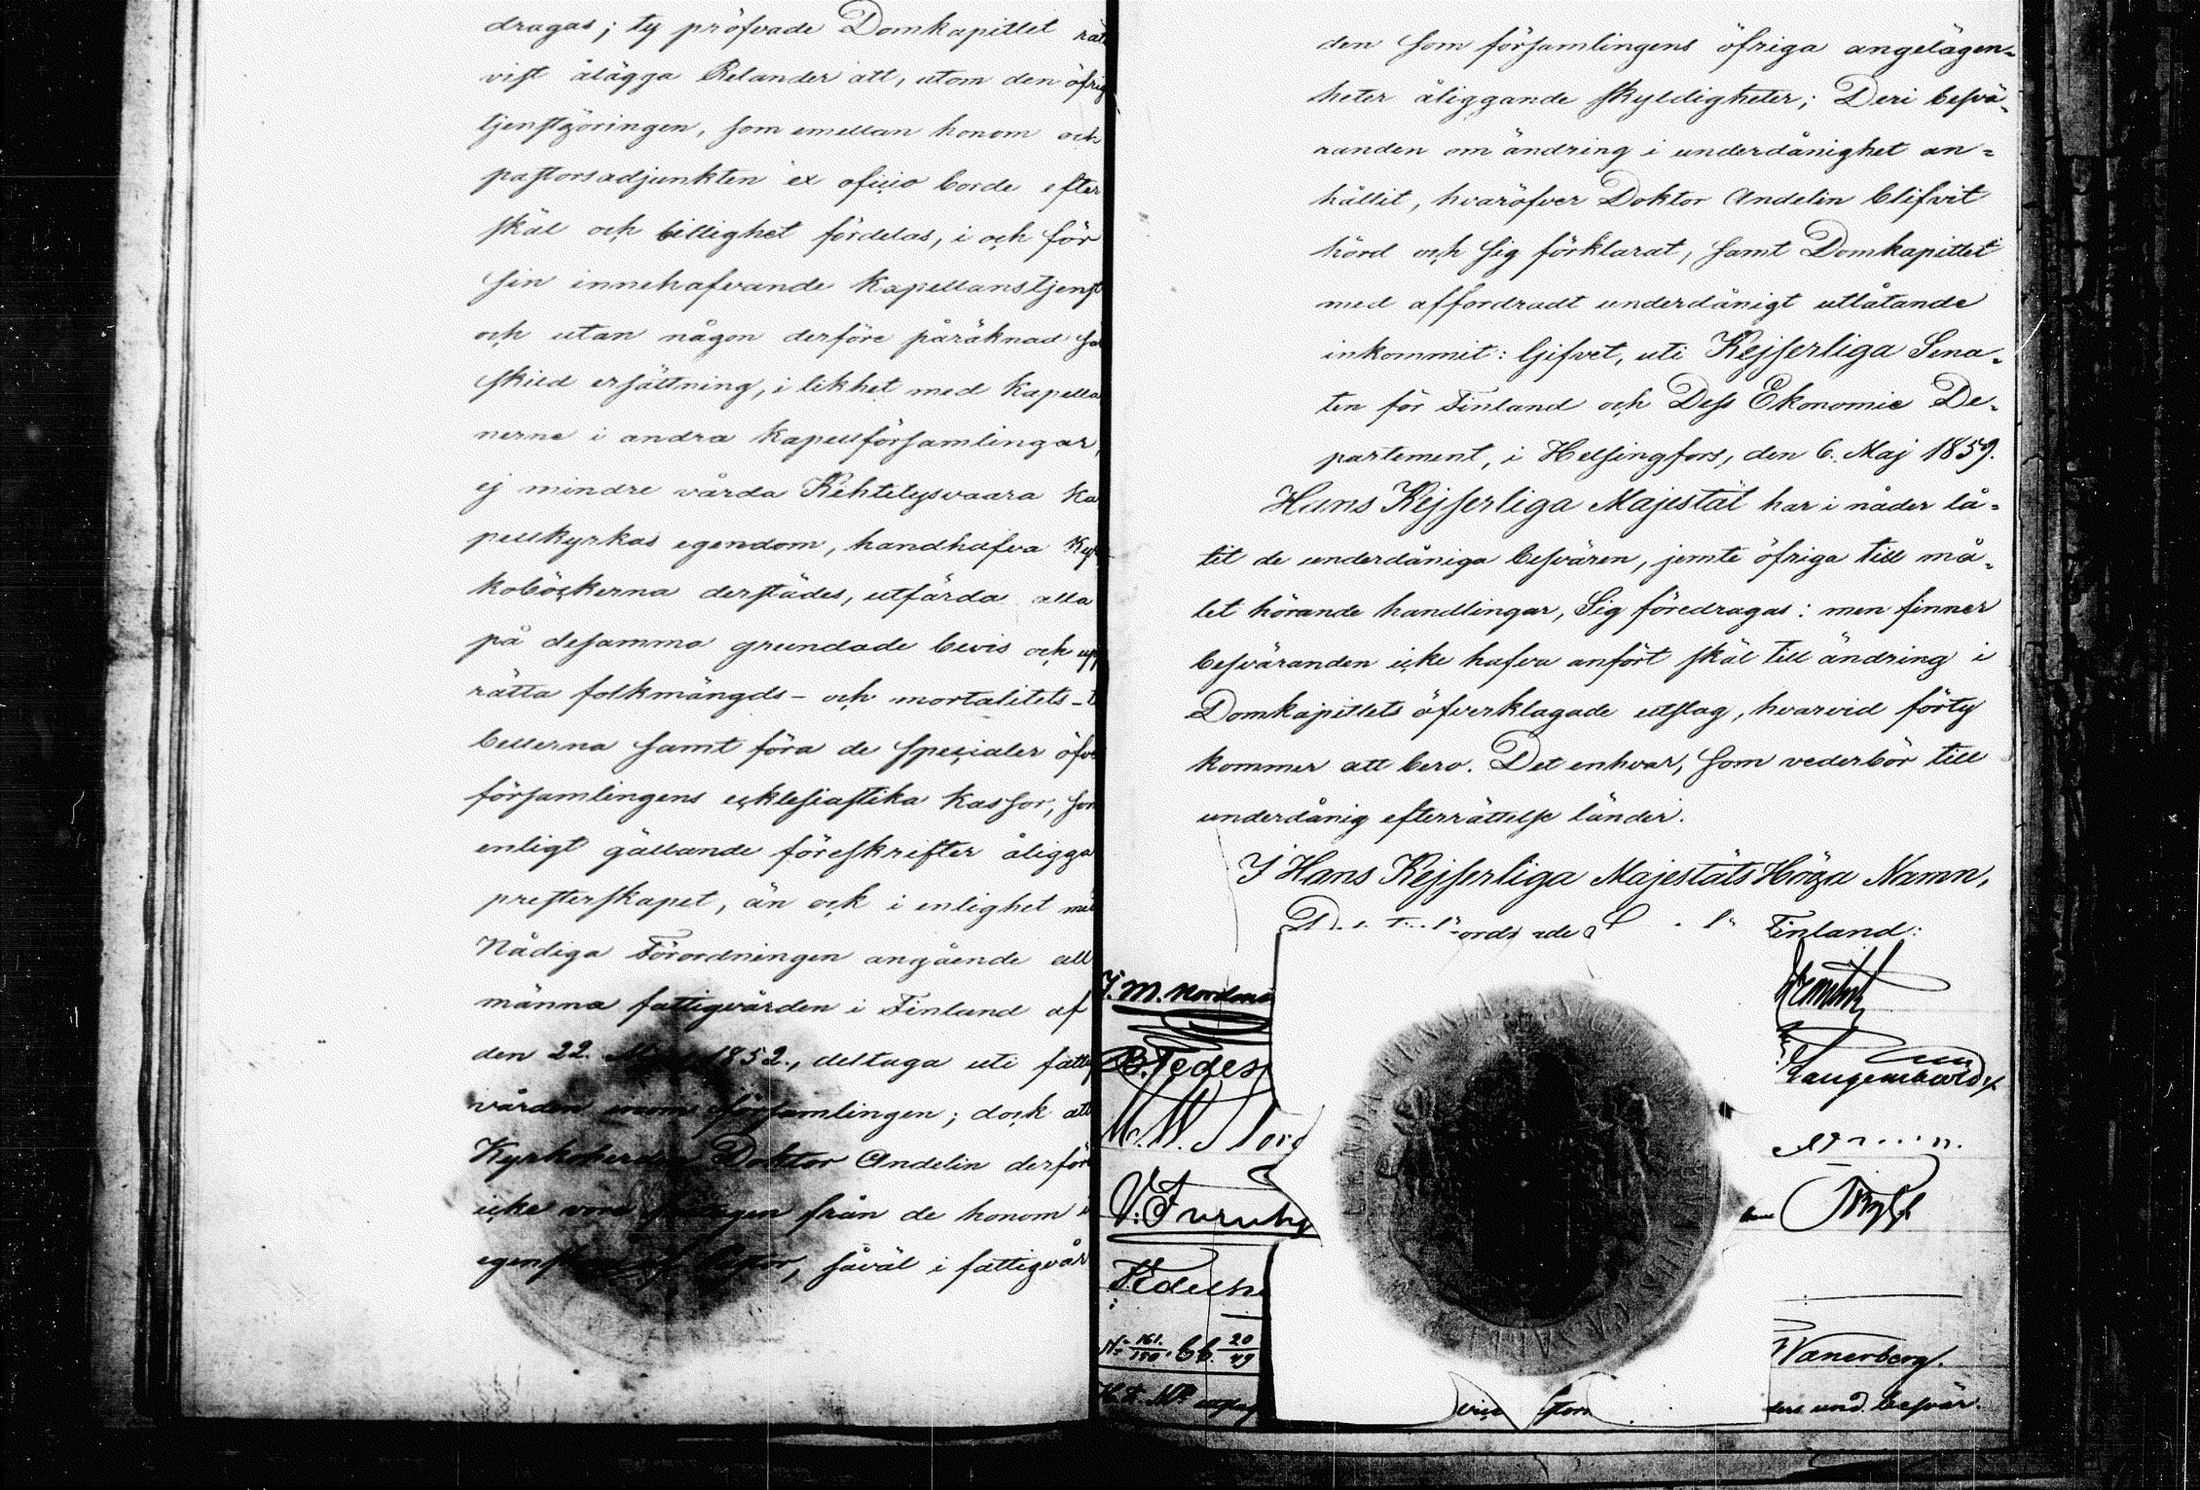 dragas; ty pröfvade Domkapitlet rätt
vist ålägga Relander att, utom den öfrig
tjenstgöringen, som emellan honom och
pastorsadjunkten ex oficio borde efter
skäl och billighet fördelas, i och för
sin innehafvande kapellanstjenst
och utan någon derföre påräknad sä
skild ersättning, i likhet med kapella
nerne i andra kapellförsamlingar,
ej mindre vårda Kehtelysvaara ka
pellkyrkas egendom, handhafva Kyr
koböckerna derstädes, utfärda alla
på desamma grundade bevis och upp
rätta folkmängds- och mortalitets-ta
bellerna samt föra de specialer öfver
församlingens ecklesiastika kassor, som
enligt gällande föreskrifter åligga
presterskapet, än ock i enlighet med
Nådiga Förordningen angående all
männa fattigvården i Finland af
den 22. 1852., deltaga uti fattig
vården inom församlingen; dock att
Kyrkoherden Doktor Andelin derföre
icke vore från de honom i
egenskap af såväl i fattigvår
den som församlingens öfriga angelägen=
heter åliggande skyldigheter; Deri besvä=
randen om ändring i underdånighet an=
hållit, hvaröfver Doktor Andelin blifvit
hörd och sig förklarat, samt Domkapitlet
med affordradt underdånigt utlåtande
inkommit: Gifvet, uti Kejserliga Sena=
ten för Finland och Dess Ekonomie De=
partement, i Helsingfors, den 6. Maj 1859.
Hans Kejserliga Majestät har i nåder lå=
tit de underdåniga besvären, jemte öfriga till må=
let hörande handlingar, Sig föredragas: men finner
besväranden icke hafva anfört skäl till ändring i
Domkapitlets öfverklagade utslag, hvarvid förty
kommer att bero. Det enhvar, som vederbör till
underdånig efterrättelse länder.
I Hans Kejserliga Majestäts Höga Namn,
Finland:
J. M. Nordens
Langenskiöld
V. Furuhj
F. Edelhe
Wanerberg.
No 161/150. 20/49
und. besvär.